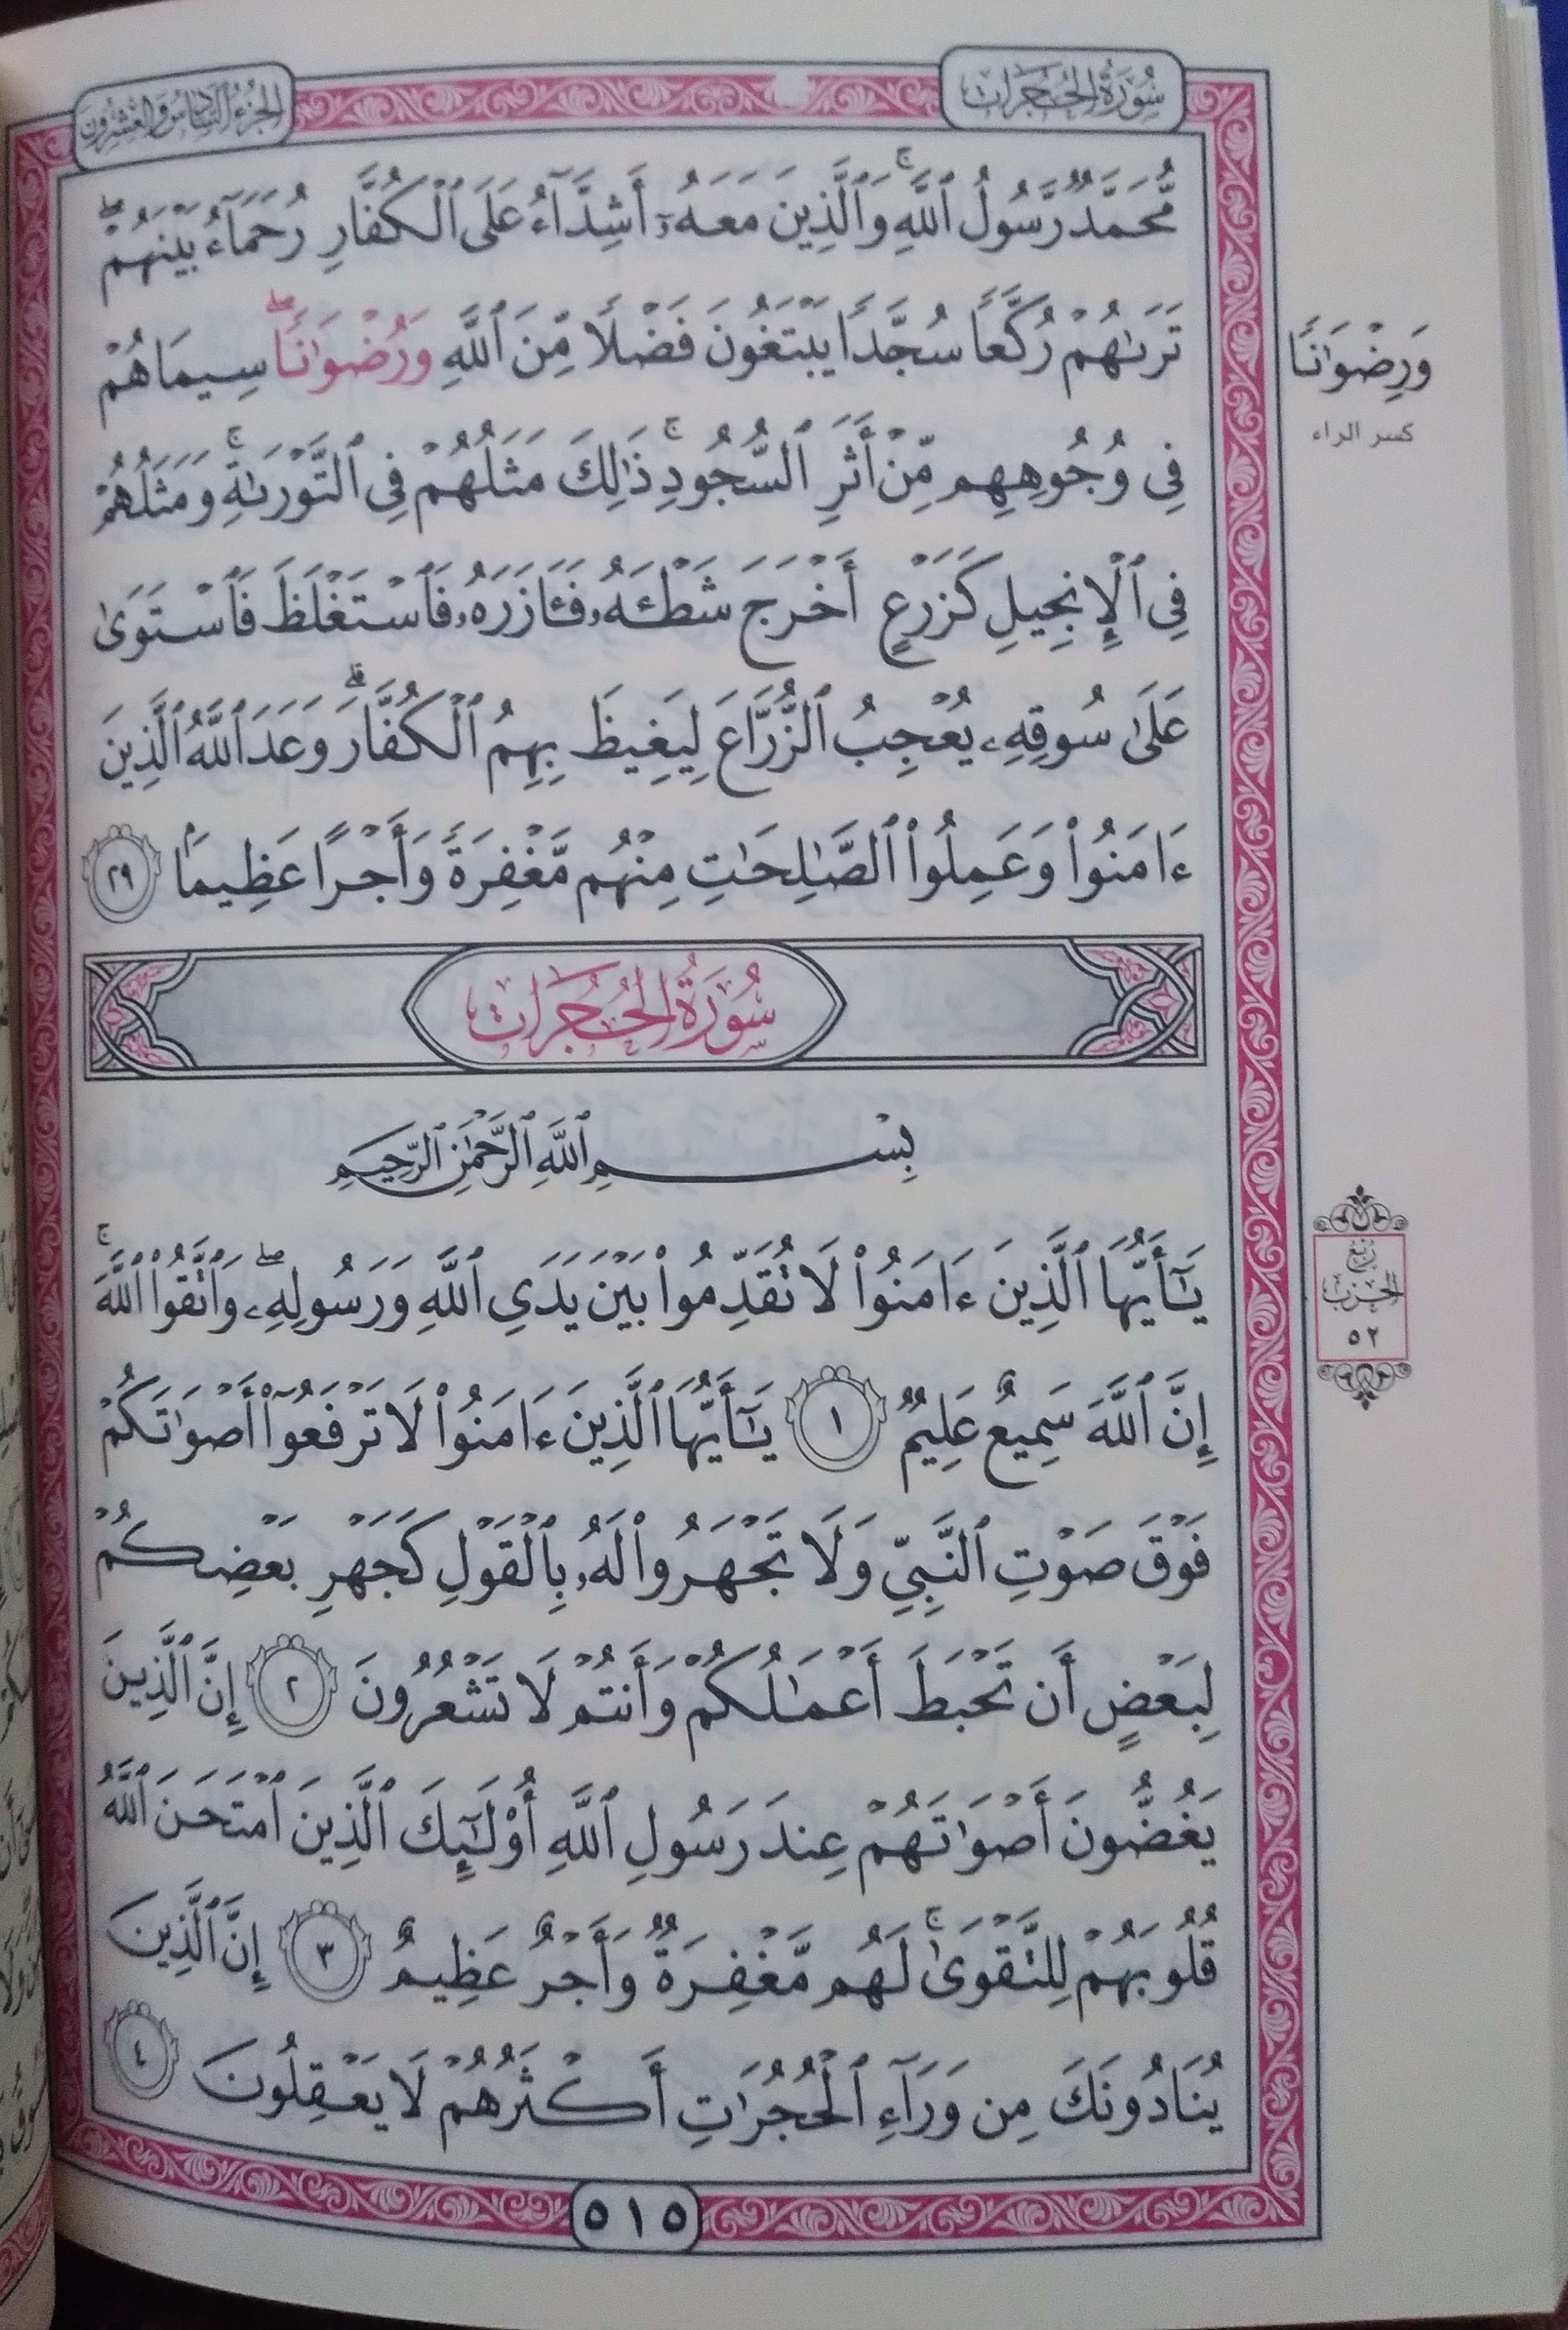 سُورَةُ الحُجُرَات
الجُزءُ السَّادِسُ وَالعِشْرُونَ
مُّحَمَّدٌ رَّسُولُ ٱللَّهِۚ وَٱلَّذِينَ مَعَهُۥٓ أَشِدَّآءُ عَلَى ٱلْكُفَّارِ رُحَمَآءُ بَيْنَهُمْۖ
تَرَىٰهُمْ رُكَّعًا سُجَّدًا يَبْتَغُونَ فَضْلًا مِّنَ ٱللَّهِ وَرُضْوَٰنًاۖ سِيمَاهُمْ
وَرِضْوَٰنًا
كسر الراء
فِى وُجُوهِهِم مِّنْ أَثَرِ ٱلسُّجُودِۚ ذَٰلِكَ مَثَلُهُمْ فِى ٱلتَّوْرَىٰةِۚ وَمَثَلُهُمْ
فِى ٱلْإِنجِيلِ كَزَرْعٍ أَخْرَجَ شَطْـَٔهُۥ فَـَٔازَرَهُۥ فَٱسْتَغْلَظَ فَٱسْتَوَىٰ
عَلَىٰ سُوقِهِۦ يُعْجِبُ ٱلزُّرَّاعَ لِيَغِيظَ بِهِمُ ٱلْكُفَّارَۗ وَعَدَ ٱللَّهُ ٱلَّذِينَ
ءَامَنُوا۟ وَعَمِلُوا۟ ٱلصَّٰلِحَٰتِ مِنْهُم مَّغْفِرَةً وَأَجْرًا عَظِيمًۢا ٢٩
سُورَةُ الحُجُرَات
بِسْمِ ٱللَّهِ ٱلرَّحْمَٰنِ ٱلرَّحِيمِ
يَٰٓأَيُّهَا ٱلَّذِينَ ءَامَنُوا۟ لَا تُقَدِّمُوا۟ بَيْنَ يَدَىِ ٱللَّهِ وَرَسُولِهِۦۖ وَٱتَّقُوا۟ ٱللَّهَۚ
رُبْعُ
الحِزْبِ
٥٢
إِنَّ ٱللَّهَ سَمِيعٌ عَلِيمٌ ١ يَٰٓأَيُّهَا ٱلَّذِينَ ءَامَنُوا۟ لَا تَرْفَعُوٓا۟ أَصْوَٰتَكُمْ
فَوْقَ صَوْتِ ٱلنَّبِىِّ وَلَا تَجْهَرُوا۟ لَهُۥ بِٱلْقَوْلِ كَجَهْرِ بَعْضِكُمْ
لِبَعْضٍ أَن تَحْبَطَ أَعْمَٰلُكُمْ وَأَنتُمْ لَا تَشْعُرُونَ ٢ إِنَّ ٱلَّذِينَ
يَغُضُّونَ أَصْوَٰتَهُمْ عِندَ رَسُولِ ٱللَّهِ أُو۟لَٰٓئِكَ ٱلَّذِينَ ٱمْتَحَنَ ٱللَّهُ
قُلُوبَهُمْ لِلتَّقْوَىٰۚ لَهُم مَّغْفِرَةٌ وَأَجْرٌ عَظِيمٌ ٣ إِنَّ ٱلَّذِينَ
يُنَادُونَكَ مِن وَرَآءِ ٱلْحُجُرَٰتِ أَكْثَرُهُمْ لَا يَعْقِلُونَ ٤
٥١٥